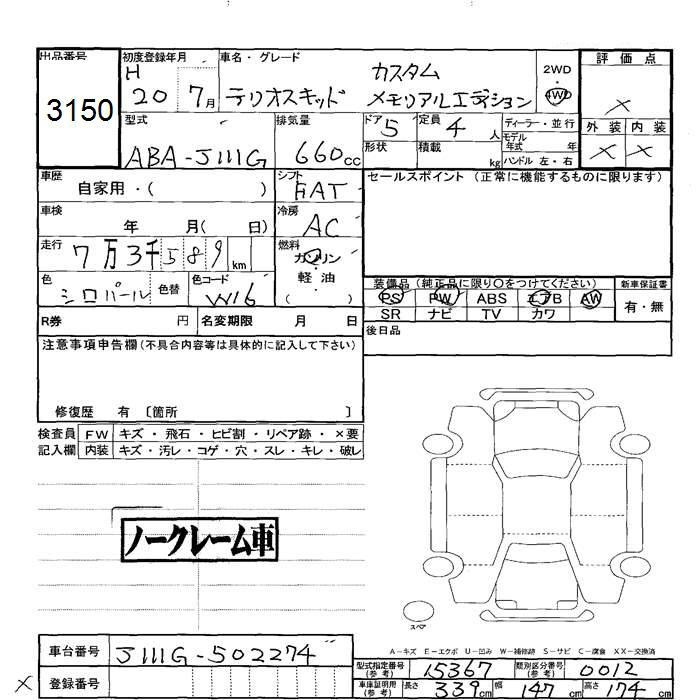 出品番号
3150
初度登録年月
H 20 7月
車名・グレード
カスタム
テリオスキッド メモリアルエディション
2WD
・
4WD
評価点
×
外装 内装
× ×
型式
ABA-J111G
排気量
660cc
ドア 5
定員 4人
形状
積載 kg
ディーラー・並行
モデル年式 年
ハンドル 左・右
車歴
自家用・( )
シフト
FAT
セールスポイント (正常に機能するものに限ります)
車検
年 月( 日)
冷房
AC
走行
7万3千589km
燃料
ガソリン
・
軽油
( )
色
シロパール
色替
色コード
W16
装備品 (純正品に限り○をつけてください)
PS PW ABS エアB AW
SR ナビ TV カワ
新車保証書
有・無
R券 円
名変期限 月 日
後日品
注意事項申告欄 (不具合内容等は具体的に記入して下さい)
修復歴 有 〔箇所 〕
検査員 FW キズ・飛石・ヒビ割・リペア跡・×要
記入欄 内装 キズ・汚レ・コゲ・穴・スレ・キレ・破レ
ノークレーム車
スペア
A-キズ E-エクボ U-凹み W-補修跡 S-サビ C-腐食 XX-交換済
車台番号 J111G-502274
型式指定番号(参考) 15367
類別区分番号(参考) 0012
× 登録番号
車庫証明用(参考) 長さ 339cm 幅 147cm 高さ 174cm